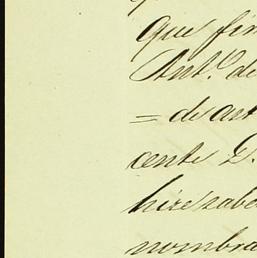 que fir
Ant.º de
= de art
cente D.
hice sabe
nombra